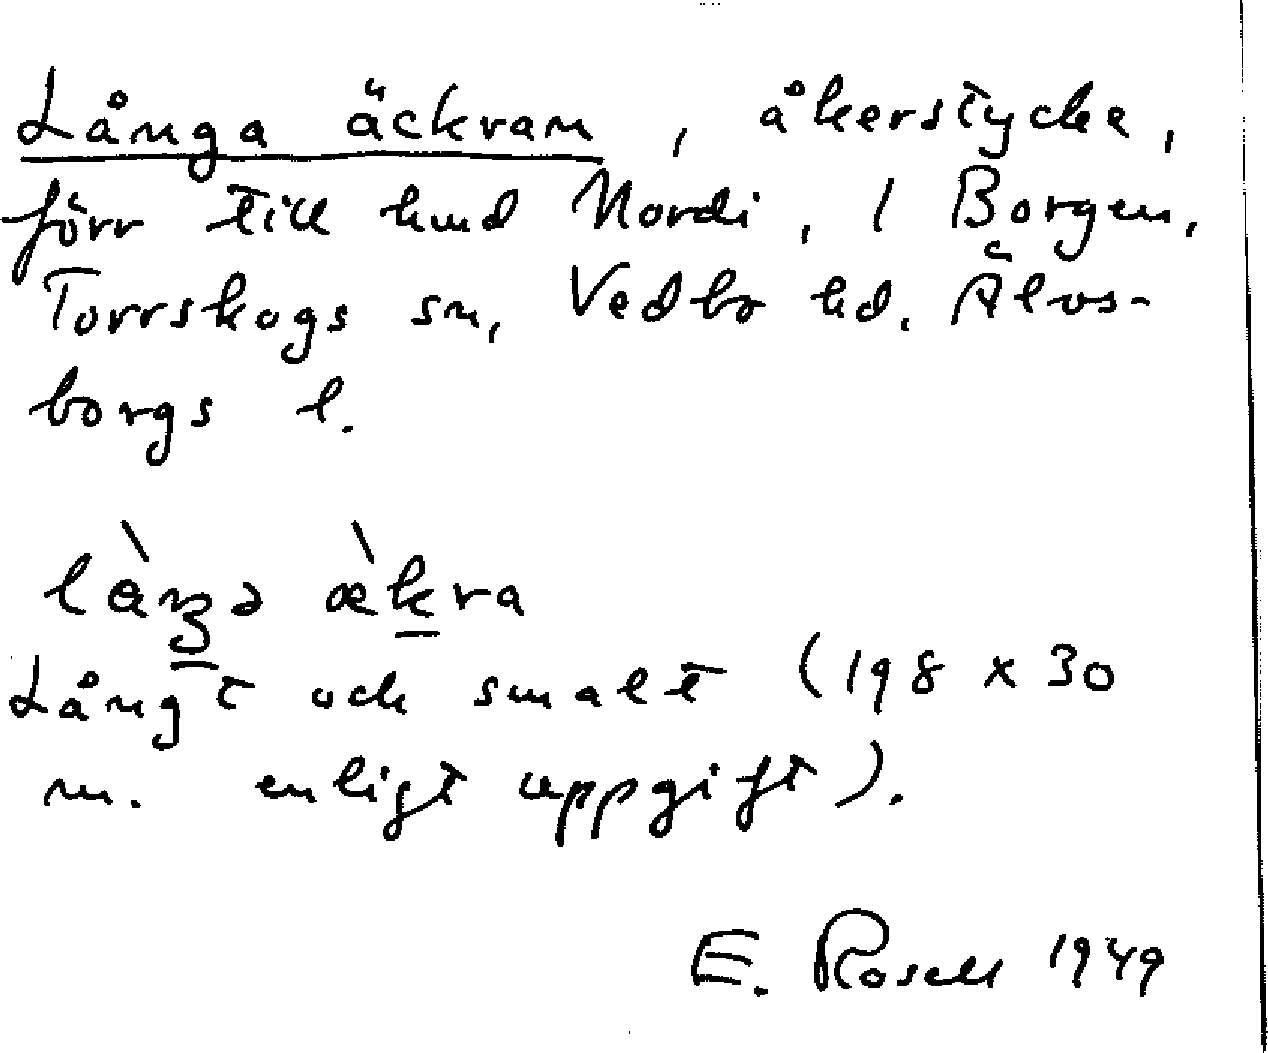 Långa äckran, åkerstycke,
förr till hmd Nordi, 1 Borgen,
Torrskogs sn, Vedbo hd. Älvs-
borgs l.
ækra
Långt och smalt (198 x 30
m. enligt uppgift).
E. Rosell 1949